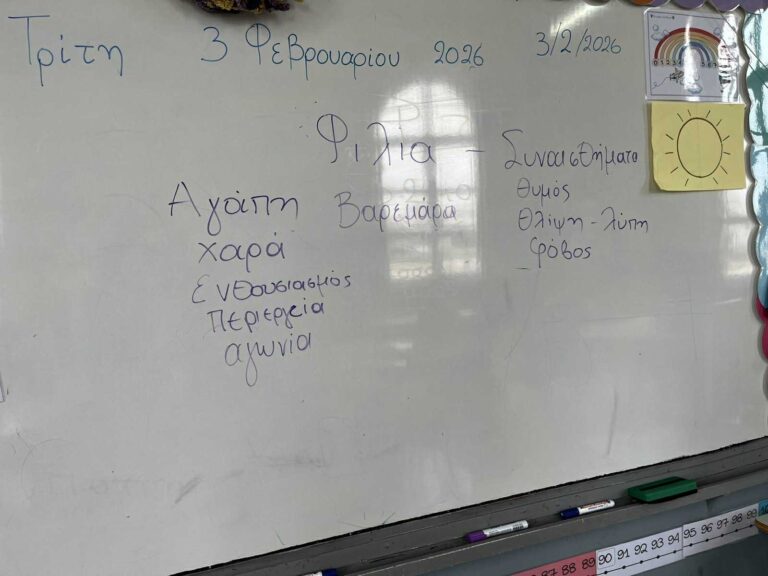 Τρίτη 3 Φεβρουαρίου 2026 3/2/2026
Φιλία - Συναισθήματα
Αγάπη Βαρεμάρα Θυμός
χαρά Θλίψη - λύπη
Ενθουσιασμός φόβος
περιεργεία
αγωνία
87 88 89 90 91 92 93 94 95 96 97 98 99